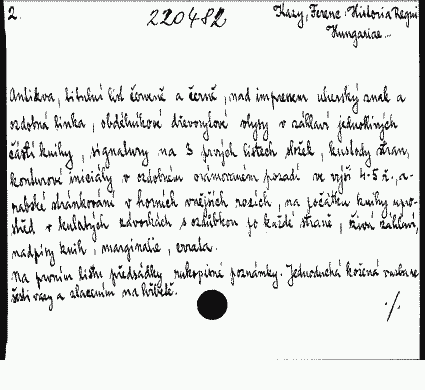 2.
220482
Kazy, Ferenc: Historia Regni
Hungariae...
Antikva, titulní list červeně a černě, nad impresem uherský znak a
ozdobná linka, obdélníkové dřevorytové vlysy v záhlaví jednotlivých
částí knihy, signatury na 3 prvých listech složek, kustody stran,
konturové iniciály v ozdobném orámovaném pozadí ve výši 4-5 ř., a-
rabské stránkování v horních vnějších rozích, na počátku knihy upro-
střed v kulatých závorkách s ozdůbkou po každé straně, živá záhlaví,
nadpisy knih, marginalie, errata.
Na prvním listu předsádky rukopisné poznámky. Jednoduchá kožená vazba se
šesti vazy a zlacením na hřbetě.
./.